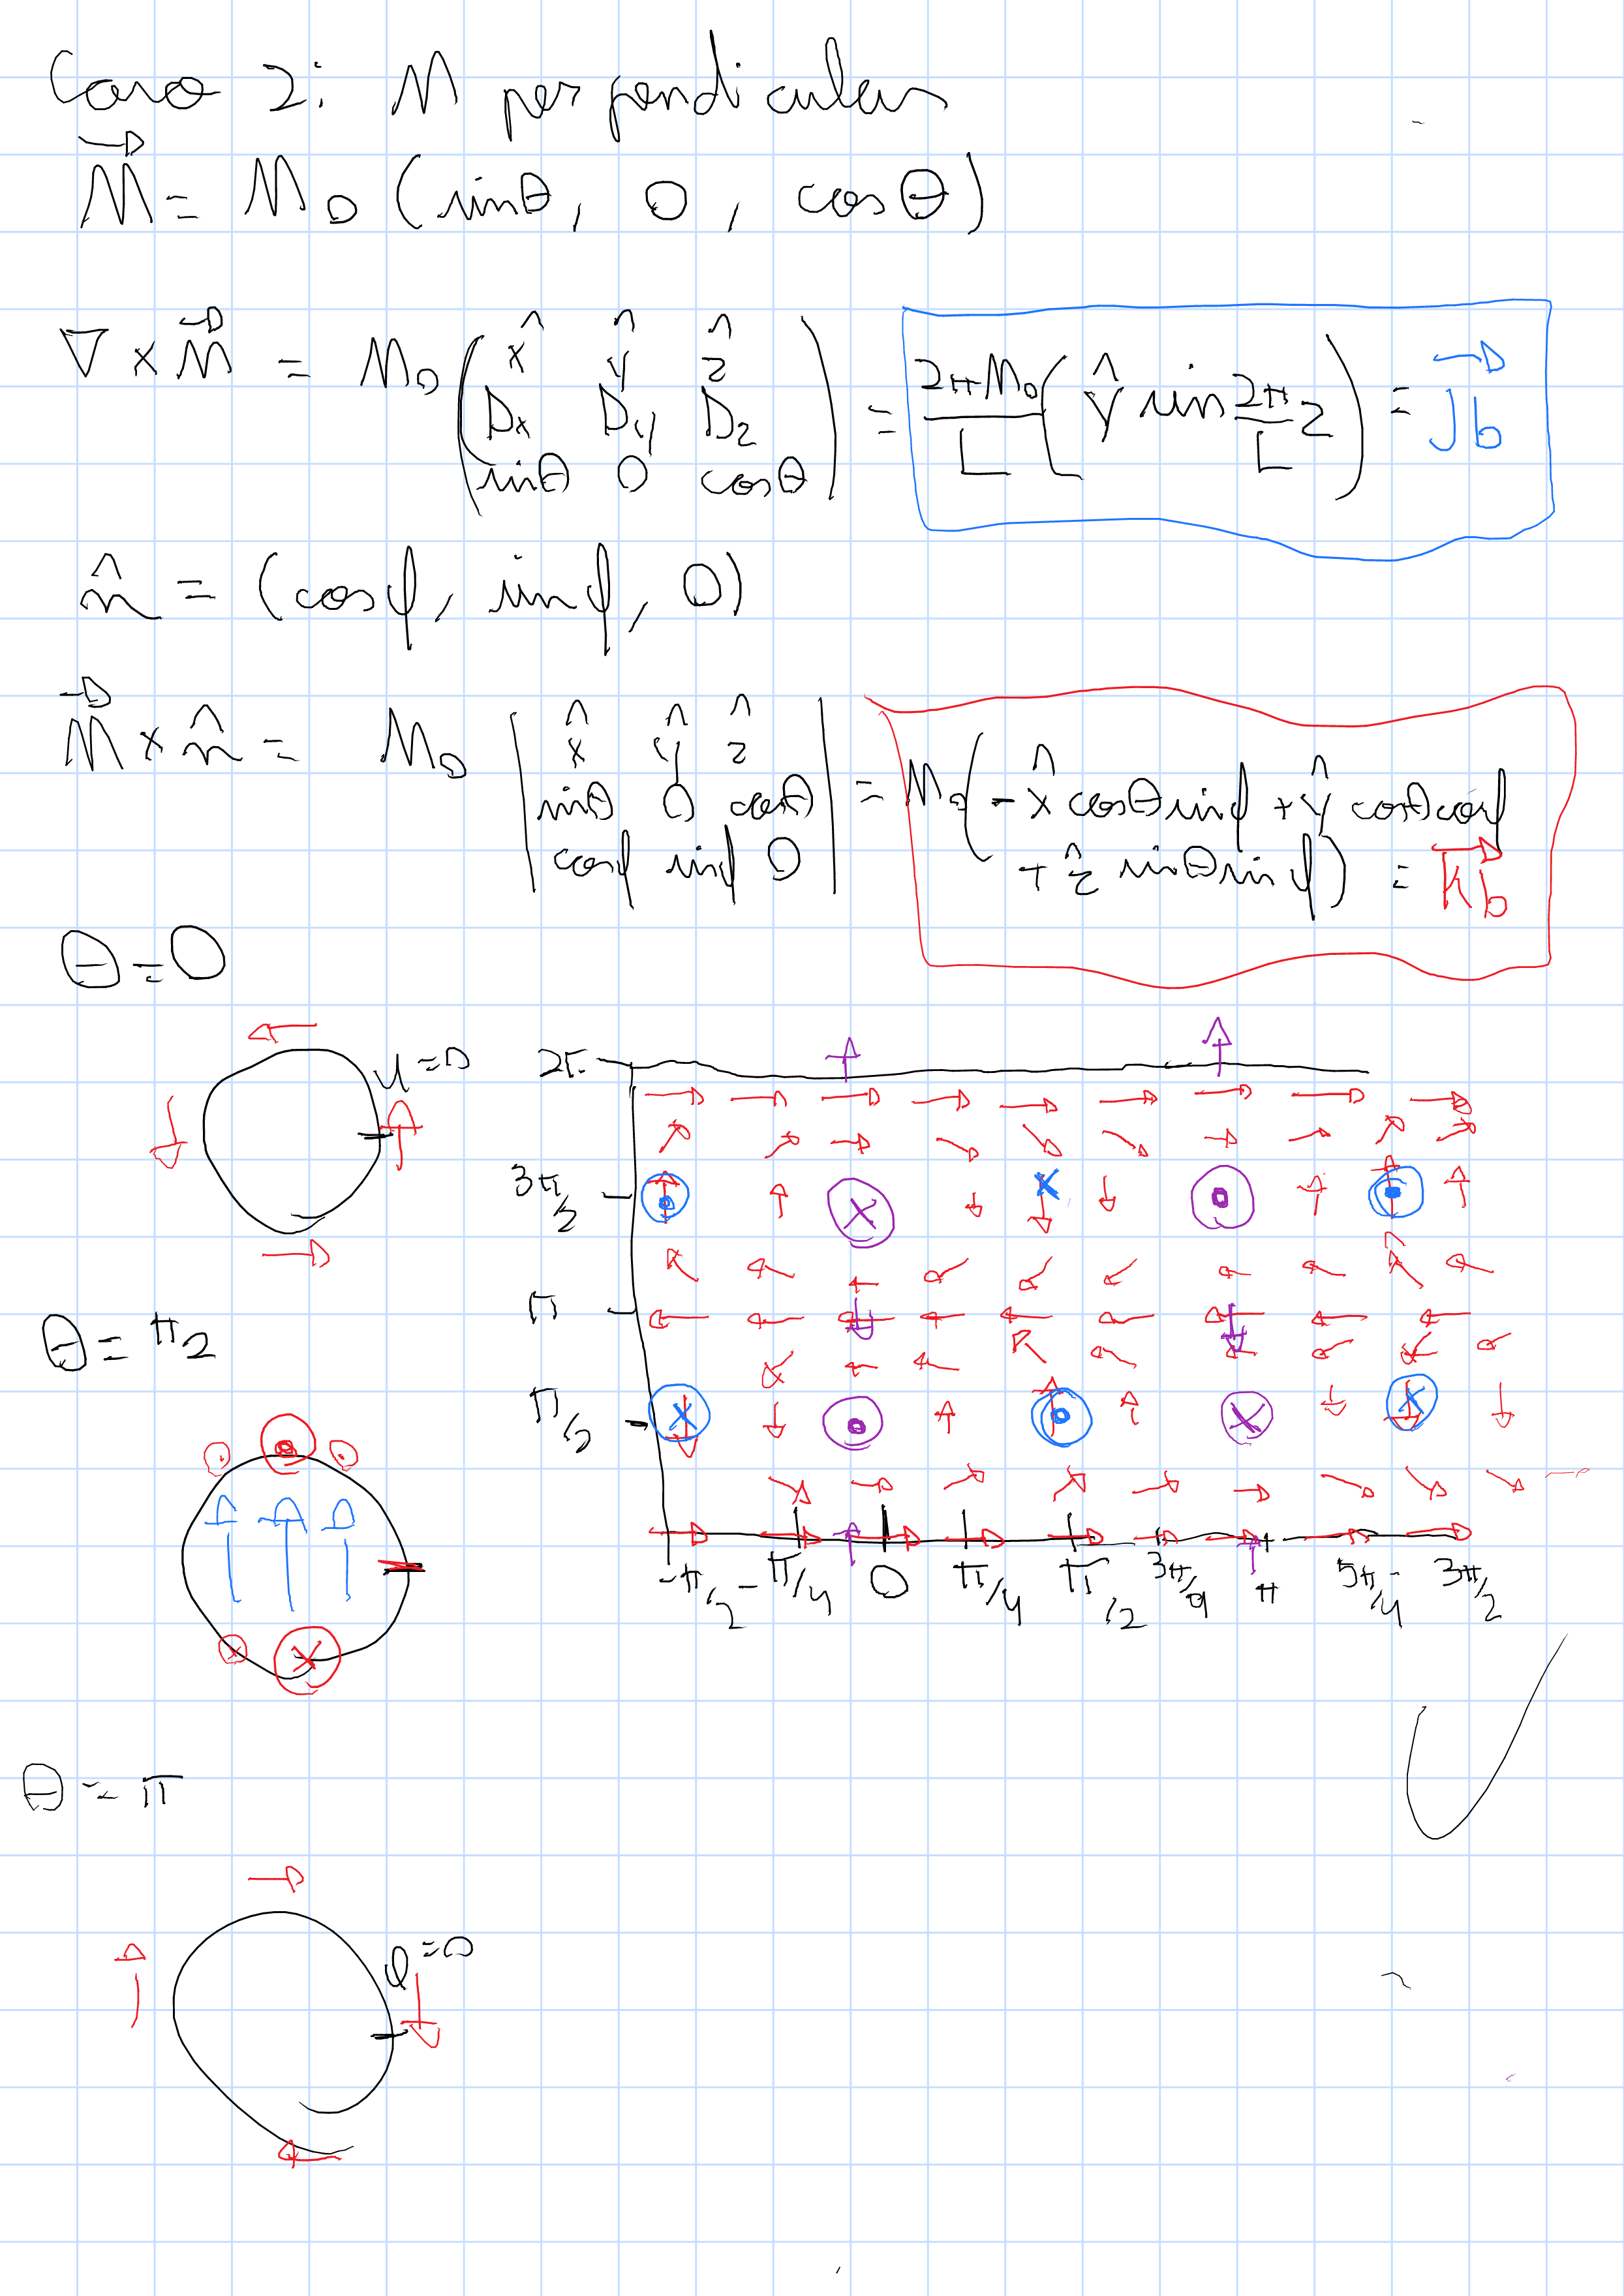 Caso 2: M perpendicular
M⃗ = M₀ (sinθ, 0, cosθ)
∇ × M⃗ = M₀ ( x̂ ŷ ẑ
Dx Dy Dz
sinθ 0 cosθ ) = 2πM₀/L ( ŷ sin 2π/L z ) = J⃗b
n̂ = (cosφ, sinφ, 0)
M⃗ × n̂ = M₀ | x̂ ŷ ẑ
sinθ 0 cosθ
cosφ sinφ 0 | = M₀ ( - x̂ cosθ sinφ + ŷ cosθ cosφ
+ ẑ sinθ sinφ ) = K⃗b
θ = 0
φ = 0
2π
3π/2
π
π/2
-π/2 -π/4 0 π/4 π/2 3π/4 π 5π/4 3π/2
θ = π/2
θ = π
φ = 0